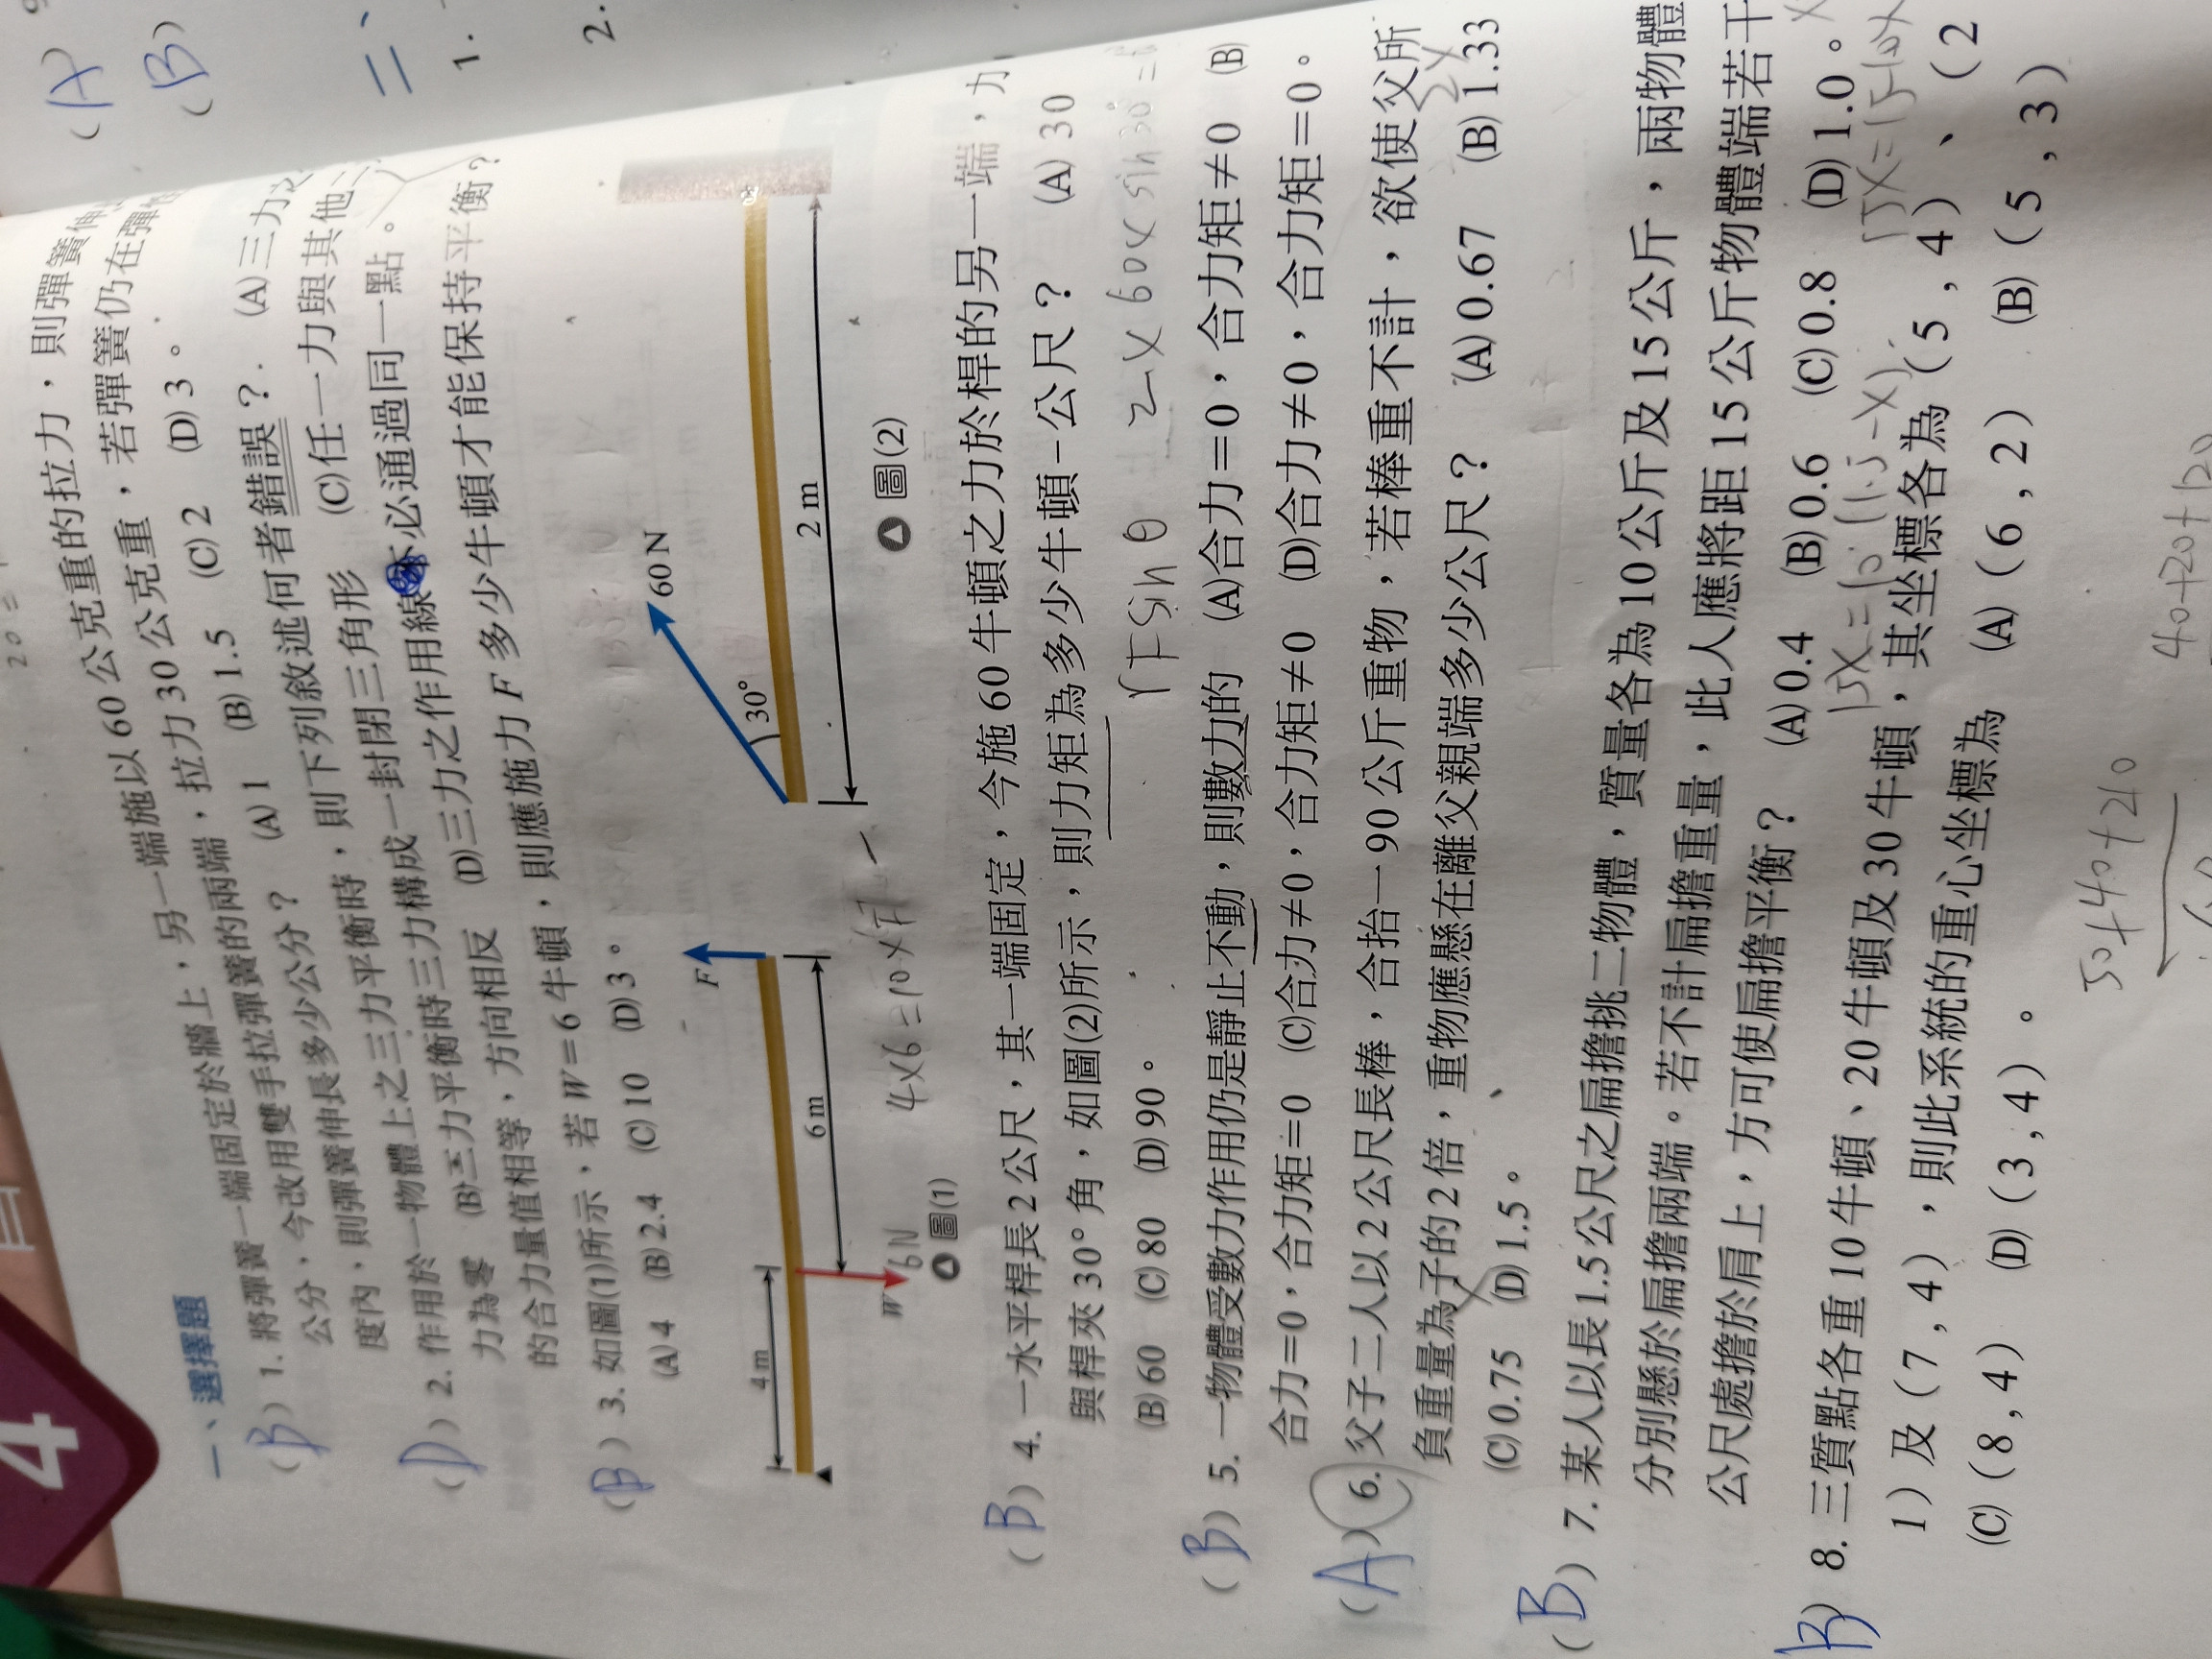 4
一、選擇題
(B) 1. 將彈簧一端固定於牆上，另一端施以60公克重的拉力，則彈簧伸
公分，今改用雙手拉彈簧的兩端，拉力30公克重，若彈簧仍在彈
度內，則彈簧伸長多少公分？ (A)1 (B)1.5 (C)2 (D)3。
(D) 2. 作用於一物體上之三力平衡時，則下列敘述何者錯誤？ (A)三力
力為零 (B)三力平衡時三力構成一封閉三角形 (C)任一力與其他
的合力量值相等，方向相反 (D)三力之作用線 必通過同一點。
(B) 3. 如圖(1)所示，若W=6牛頓，則應施力F多少牛頓才能保持平衡？
(A)4 (B)2.4 (C)10 (D)3。
F
4 m
6 m
W
6N
4×6=10×F
圖(1)
60 N
30°
2 m
圖(2)
(B) 4. 一水平桿長2公尺，其一端固定，今施60牛頓之力於桿的另一端，力
與桿夾30°角，如圖(2)所示，則力矩為多少牛頓-公尺？ (A)30
(B)60 (C)80 (D)90。
rFsinθ 2×60×sin30°=
(B) 5. 一物體受數力作用仍是靜止不動，則數力的 (A)合力=0，合力矩≠0 (B)
合力=0，合力矩=0 (C)合力≠0，合力矩≠0 (D)合力≠0，合力矩=0。
(A) 6. 父子二人以2公尺長棒，合抬一90公斤重物，若棒重不計，欲使父所
負重量為子的2倍，重物應懸在離父親端多少公尺？ (A)0.67 (B)1.33
(C)0.75 (D)1.5。
2X
X
(B) 7. 某人以長1.5公尺之扁擔挑二物體，質量各為10公斤及15公斤，兩物體
分別懸於扁擔兩端。若不計扁擔重量，此人應將距15公斤物體端若干
公尺處擔於肩上，方可使扁擔平衡？ (A)0.4 (B)0.6 (C)0.8 (D)1.0。
15X=10(1.5-X)
15X=15-10X
(B) 8. 三質點各重10牛頓、20牛頓及30牛頓，其坐標各為(5,4)、(2
1)及(7,4)，則此系統的重心坐標為 (A)(6,2) (B)(5,3)
(C)(8,4) (D)(3,4)。
50+40+210
40+20+120
(A)
(B)
二、
1.
2.